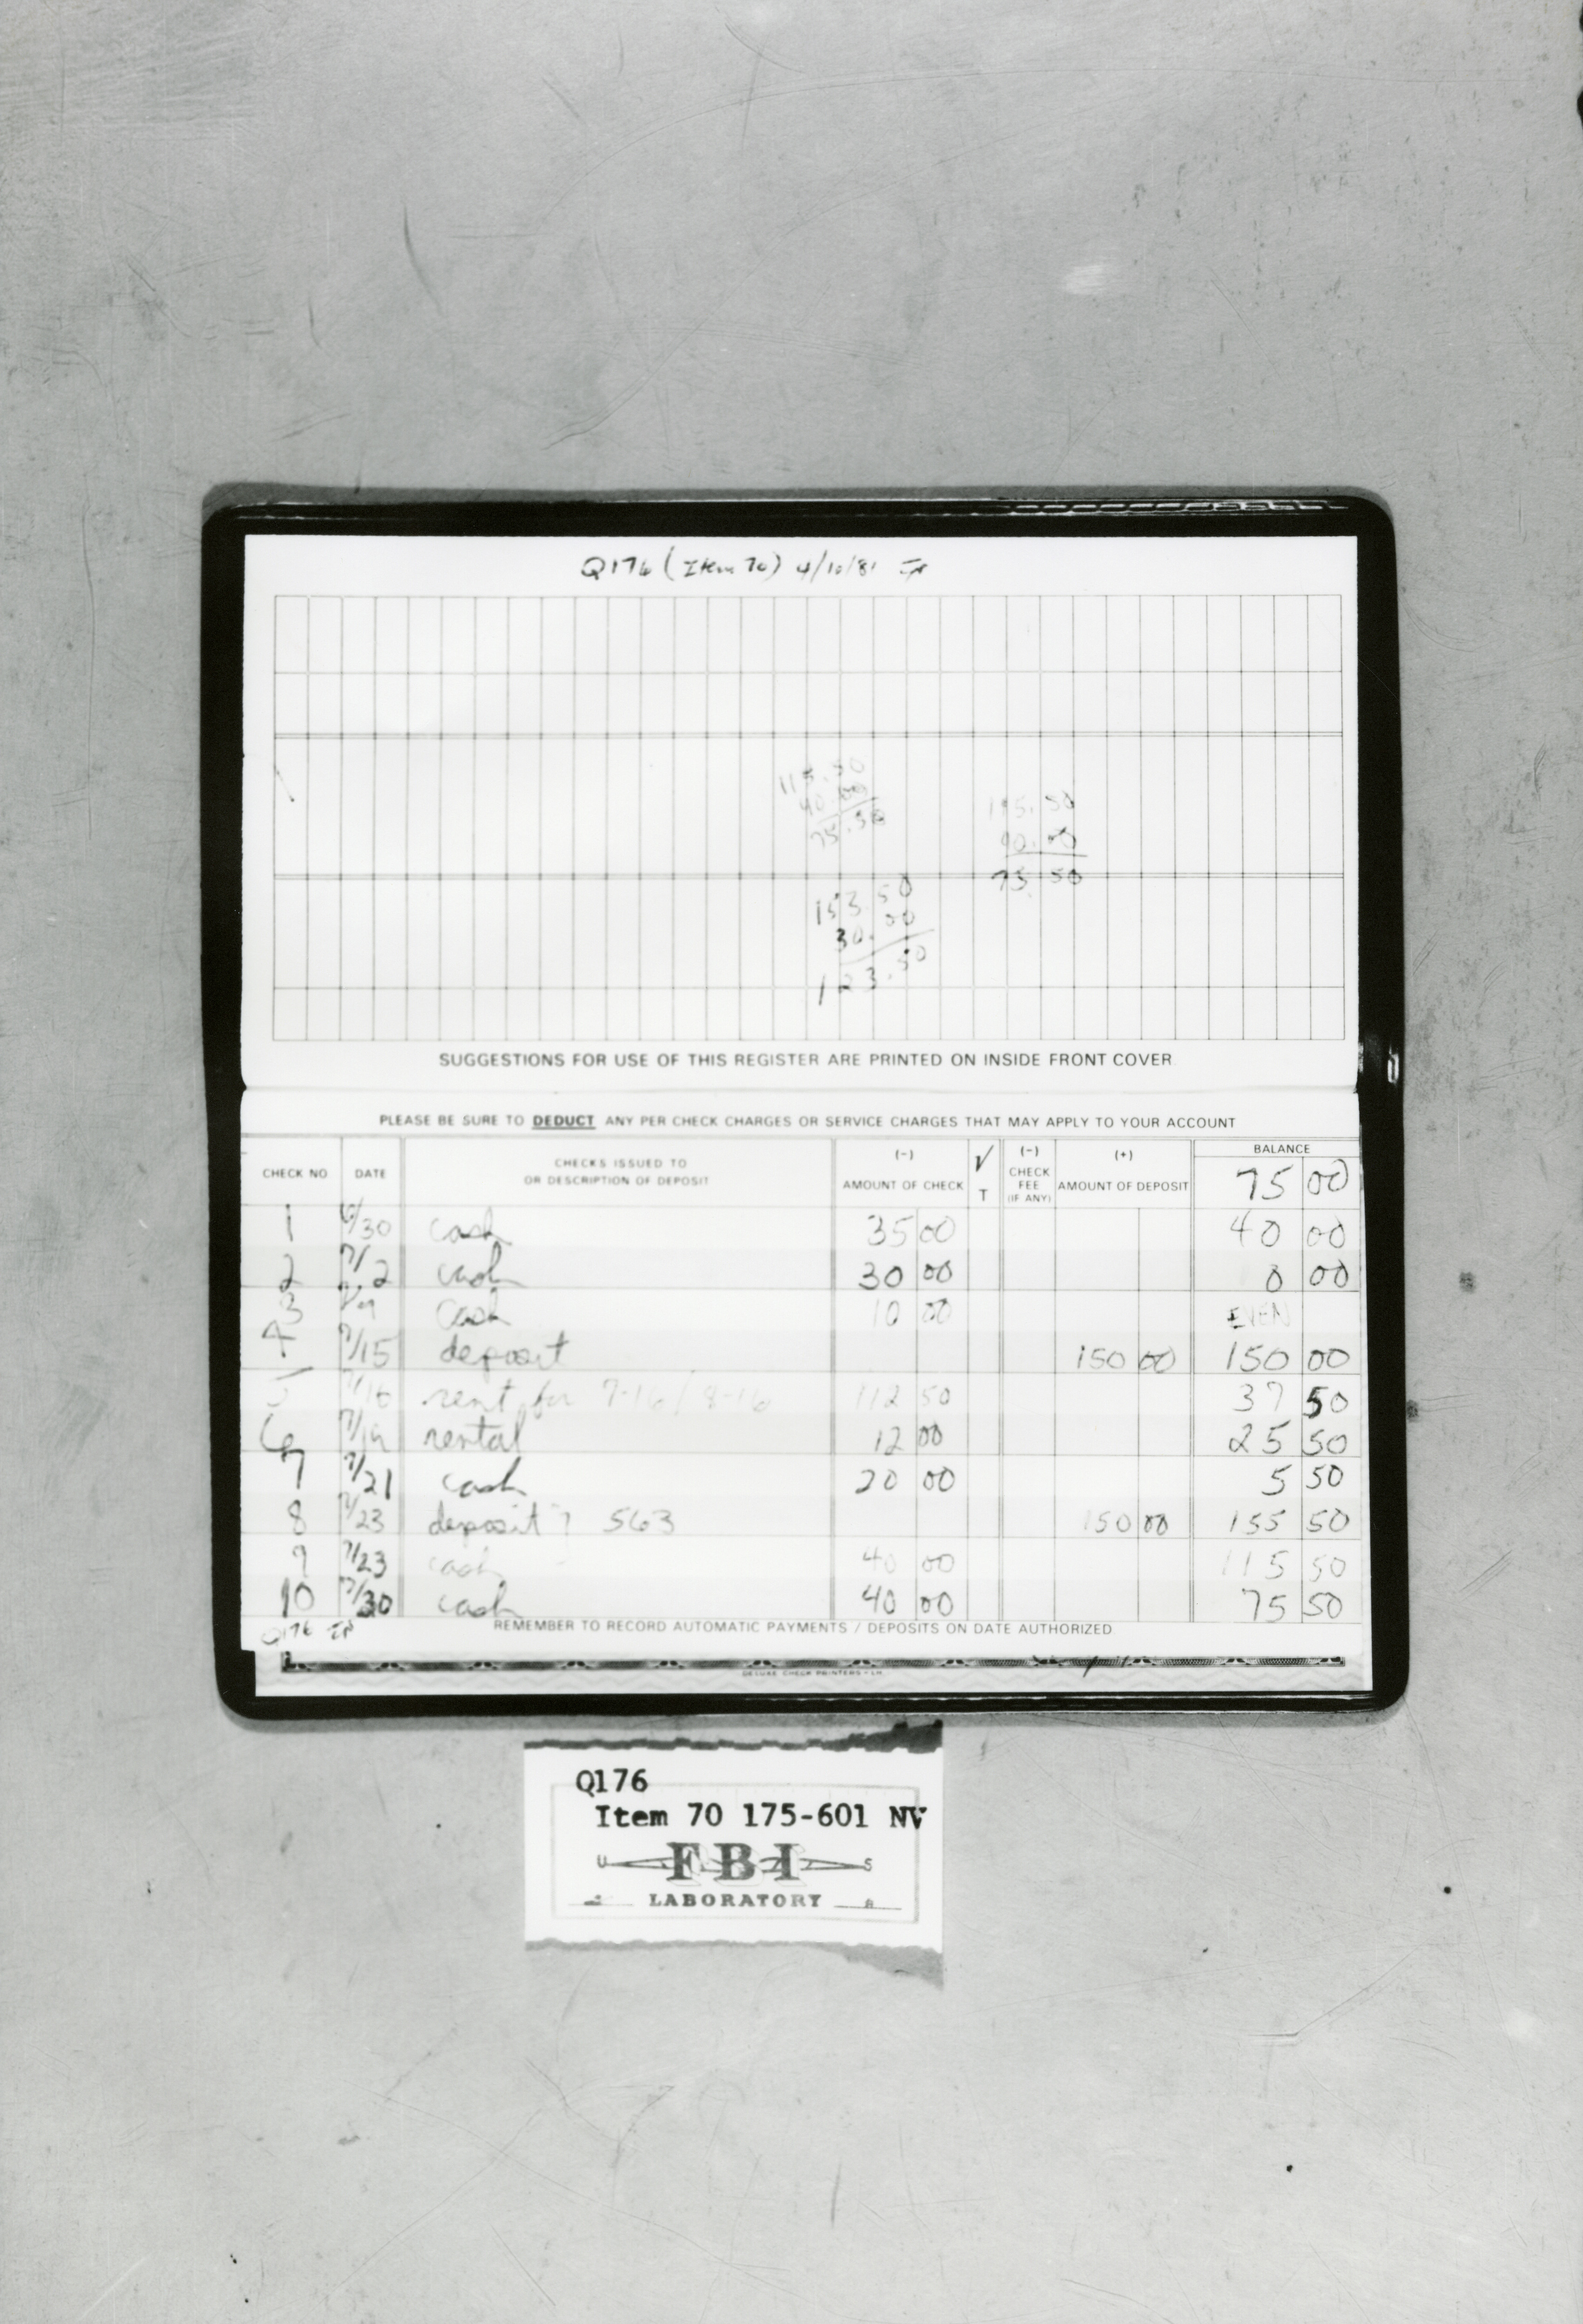 Q176 (Item 70) 4/10/81
115.50
40.00
75.50
115.50
40.00
75.50
153.50
30.00
123.50
SUGGESTIONS FOR USE OF THIS REGISTER ARE PRINTED ON INSIDE FRONT COVER
PLEASE BE SURE TO DEDUCT ANY PER CHECK CHARGES OR SERVICE CHARGES THAT MAY APPLY TO YOUR ACCOUNT
CHECK NO DATE CHECKS ISSUED TO OR DESCRIPTION OF DEPOSIT (-) AMOUNT OF CHECK √ T (-) CHECK FEE (IF ANY) (+) AMOUNT OF DEPOSIT BALANCE
75 00
1 6/30 cash 35 00 40 00
2 7/2 cash 30 00 0 00
3 7/9 cash 10 00 EVEN
4 7/15 deposit 150 00 150 00
5 7/16 rent for 7-16/8-16 112 50 37 50
6 7/19 rental 12 00 25 50
7 7/21 cash 20 00 5 50
8 7/23 deposit ? 563 150 00 155 50
9 7/23 cash 40 00 115 50
10 7/30 cash 40 00 75 50
Q176
REMEMBER TO RECORD AUTOMATIC PAYMENTS / DEPOSITS ON DATE AUTHORIZED
DELUXE CHECK PRINTERS - LH
Q176
Item 70 175-601 NV
U FBI S
LABORATORY